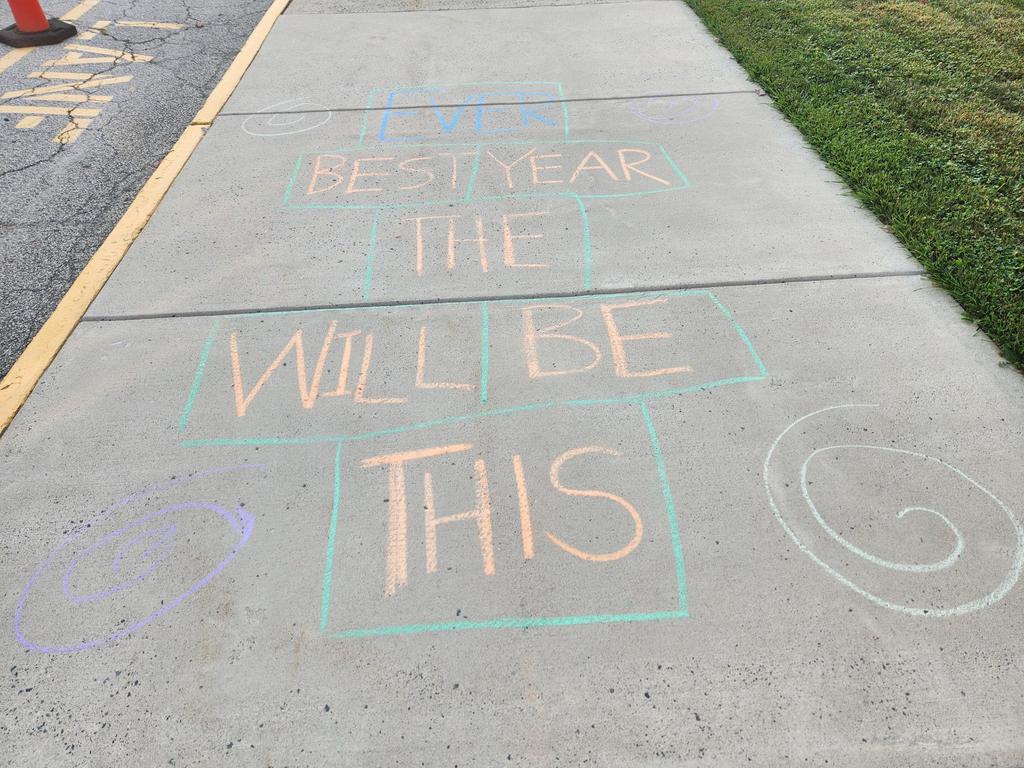 THIS
WILL BE
THE
BEST YEAR
EVER